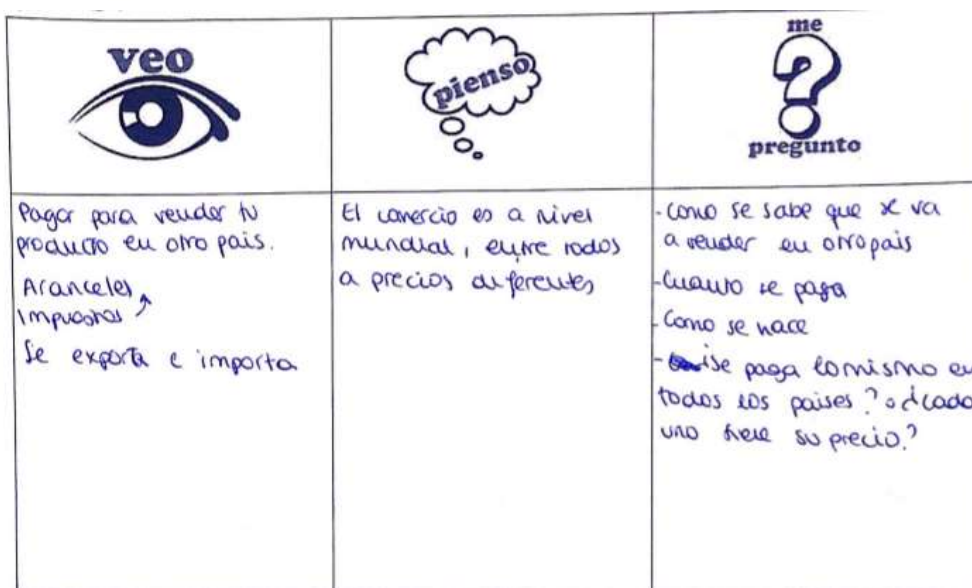 veo
pienso
me
pregunto
Pagar para vender tu
producto en otro pais.
Aranceles
impuestos
Se exporta e importa
El comercio es a nivel
mundial, entre todos
a precios diferentes
-Como se sabe que se va
a vender en otro pais
-Cuanto se paga
-Como se hace
- ¿Se paga lo mismo en
todos los paises? o ¿cada
uno tiene su precio?